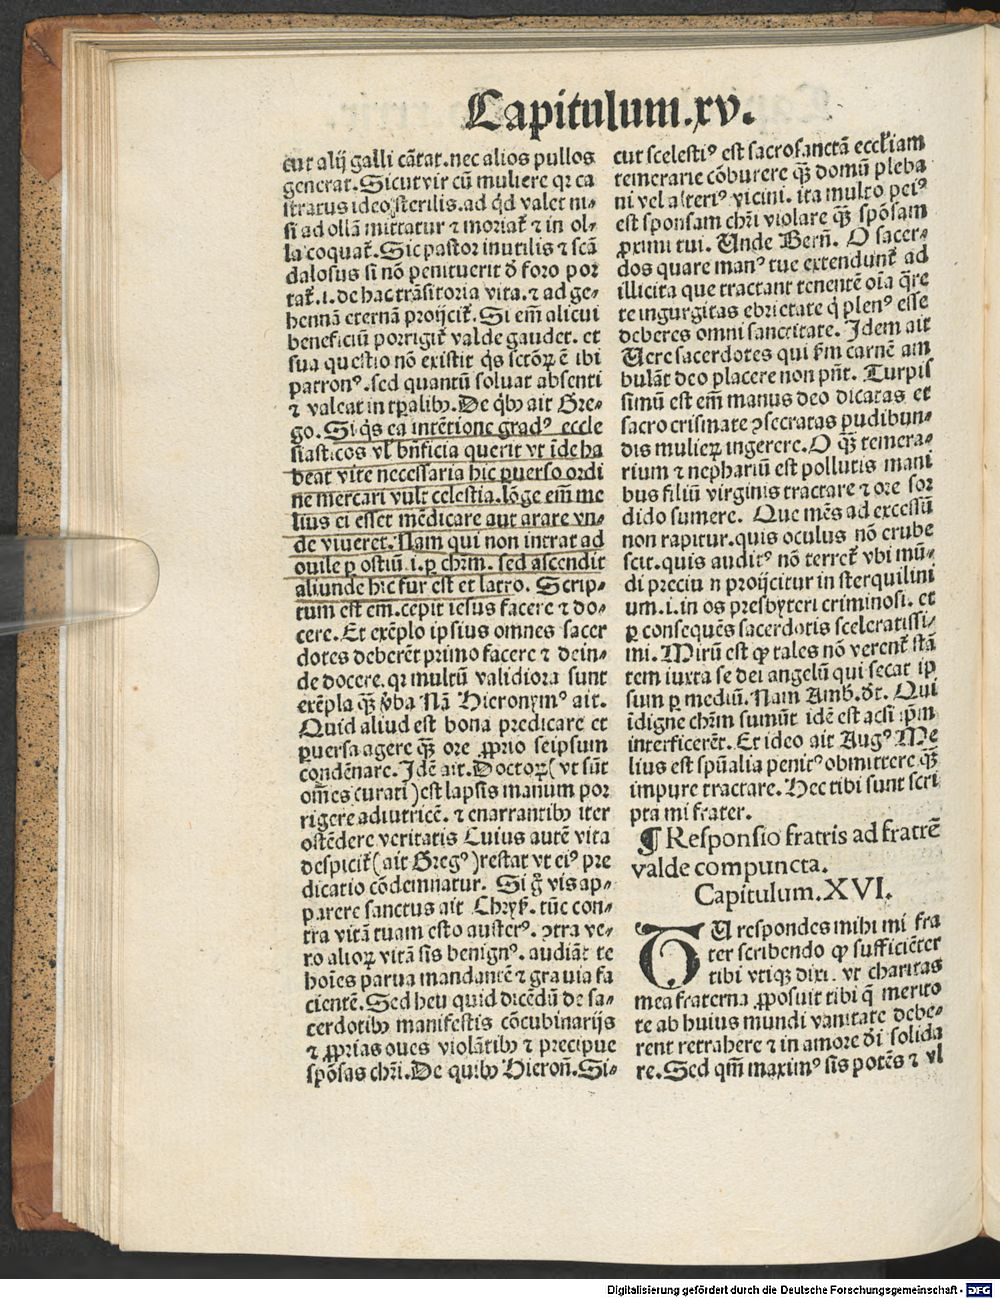 Capitulum.xv.
cut alij galli cãtat.nec alios pullos
generat.Sicut vir cũ muliere qꝛ ca
stratus ideo sterilis.ad qͥd valet ni⸗
si ad ollã mittatur ⁊ moriat᷑ ⁊ in ol⸗
la coquat᷑.Sic pastor inutilis ⁊ scã
dalosus si nõ penituerit ð foro por
tat᷑.i.de hac trãsitoria vita.⁊ ad ge⸗
hennã eternã proijcit᷑.Si em̃ alicui
beneficiũ porrigit᷑ valde gaudet. et
sua questio nõ existit qͥs sctõꝝ ẽ ibi
patronꝰ.sed quantũ soluat absenti
⁊ valeat in tꝑalibꝫ.De qͥbꝫ ait Gre⸗
go. Si qͥs ea intẽtione gradꝰ eccle
siasticos vl̓ bñficia querit vt ĩde ha
beat vite necessaria hic ꝑuerso ordi
ne mercari vult celestia.lõge em̃ me
lius ei esset mẽdicare aut arare vn⸗
de viueret.Nam qui non intrat ad
ouile ꝑ ostiũ.i.ꝑ chr̃m. sed ascendit
aliunde hic fur est et latro. Scrip⸗
tum est em̃.cepit iesus facere ⁊ do⸗
cere. Et exẽplo ipsius omnes sacer
dotes deberẽt primo facere ⁊ dein⸗
de docere. qꝛ multũ validiora sunt
exẽpla qꝫ̃ v̓ba Nã Hieronymꝰ ait.
Quid aliud est bona predicare et
ꝑuersa agere qꝫ̃ ore ꝓprio seipsum
condẽnare. Idẽ ait. Doctoꝝ( vt sũt
om̃es curati )est lapsis manum por
rigere adiutricẽ. ⁊ enarrantibꝫ iter
ostẽdere veritatis Cuius autẽ vita
despicit᷑(ait Gregꝰ)restat vt eiꝰ pre
dicatio cõdemnatur. Si g̊ vis ap⸗
parere sanctus ait Chryẜ. tũc con⸗
tra vitã tuam esto austerꝰ. ꝯtra ve⸗
ro alioꝝ vitã sis benignꝰ. audiãt te
hoĩes parua mandantẽ ⁊ grauia fa
cientẽ.Sed heu quid dicẽdũ de sa⸗
cerdotibꝫ manifestis cõcubinarijs
⁊ ꝓprias oues violãtibꝫ ⁊ precipue
spõsas chr̃i.De quibꝫ Hieroñ.Si⸗
cut scelestiꝰ est sacrosanctã eccl̓iam
temerarie cõburere qꝫ̃ domũ pleba
ni vel alteriꝰ vicini. ita multo peiꝰ
est sponsam chr̃i violare qꝫ̃ spõsam
ꝓximi tui. Unde Berñ. O sacer⸗
dos quare manꝰ tue extendunt᷑ ad
illicita que tractant tenentẽ oĩa qͣre
te ingurgitas ebrietate qͥ plenꝰ esse
deberes omni sanctitate. Idem ait
Uere sacerdotes qui ẜm carnẽ am
bulãt deo placere non pñt. Turpis
simũ est em̃ manus deo dicatas et
sacro crismate ꝯsecratas pudibun⸗
dis mulieꝝ ingerere.O qꝫ̃ temera⸗
rium ⁊ nephariũ est pollutis mani
bus filiũ virginis tractare ⁊ ore sor
dido sumere. Que mẽs ad excessũ
non rapitur.quis oculus nõ erube
scit.quis auditꝰ nõ terret᷑ vbi mũ⸗
di preciũ proijcitur in sterquilini
um.i.in os presbyteri criminosi. et
ꝑ consequẽs sacerdotis sceleratissi⸗
mi. Mirũ est ꝙ tales nõ verent᷑ stã
tem iuxta se dei angelũ qui secat ip
sum ꝑ mediũ. Nam Amb̃. dt̃. Qui
ĩdigne chr̃m sumũt idẽ est acsi ip̃m
interficerẽt. Et ideo ait Augꝰ Me
lius est spũalia penitꝰ obmittere qꝫ̃
impure tractare. Hec tibi sunt scri
pta mi frater.
¶ Responsio fratris ad fratrẽ
valde compuncta.
Capitulum.XVI.
TU respondes mihi mi fra
ter scribendo ꝙ sufficiẽter
tibi vtiqꝫ dixi. vt charitas
mea fraterna ꝓposuit tibi q̃ merito
te ab huius mundi vanitate debe⸗
rent retrahere ⁊ in amore ði solida
re.Sed qm̃ maximꝰ sis potẽs ⁊ vl̓
Digitalisierung gefördert durch die Deutsche Forschungsgemeinschaft - DFG